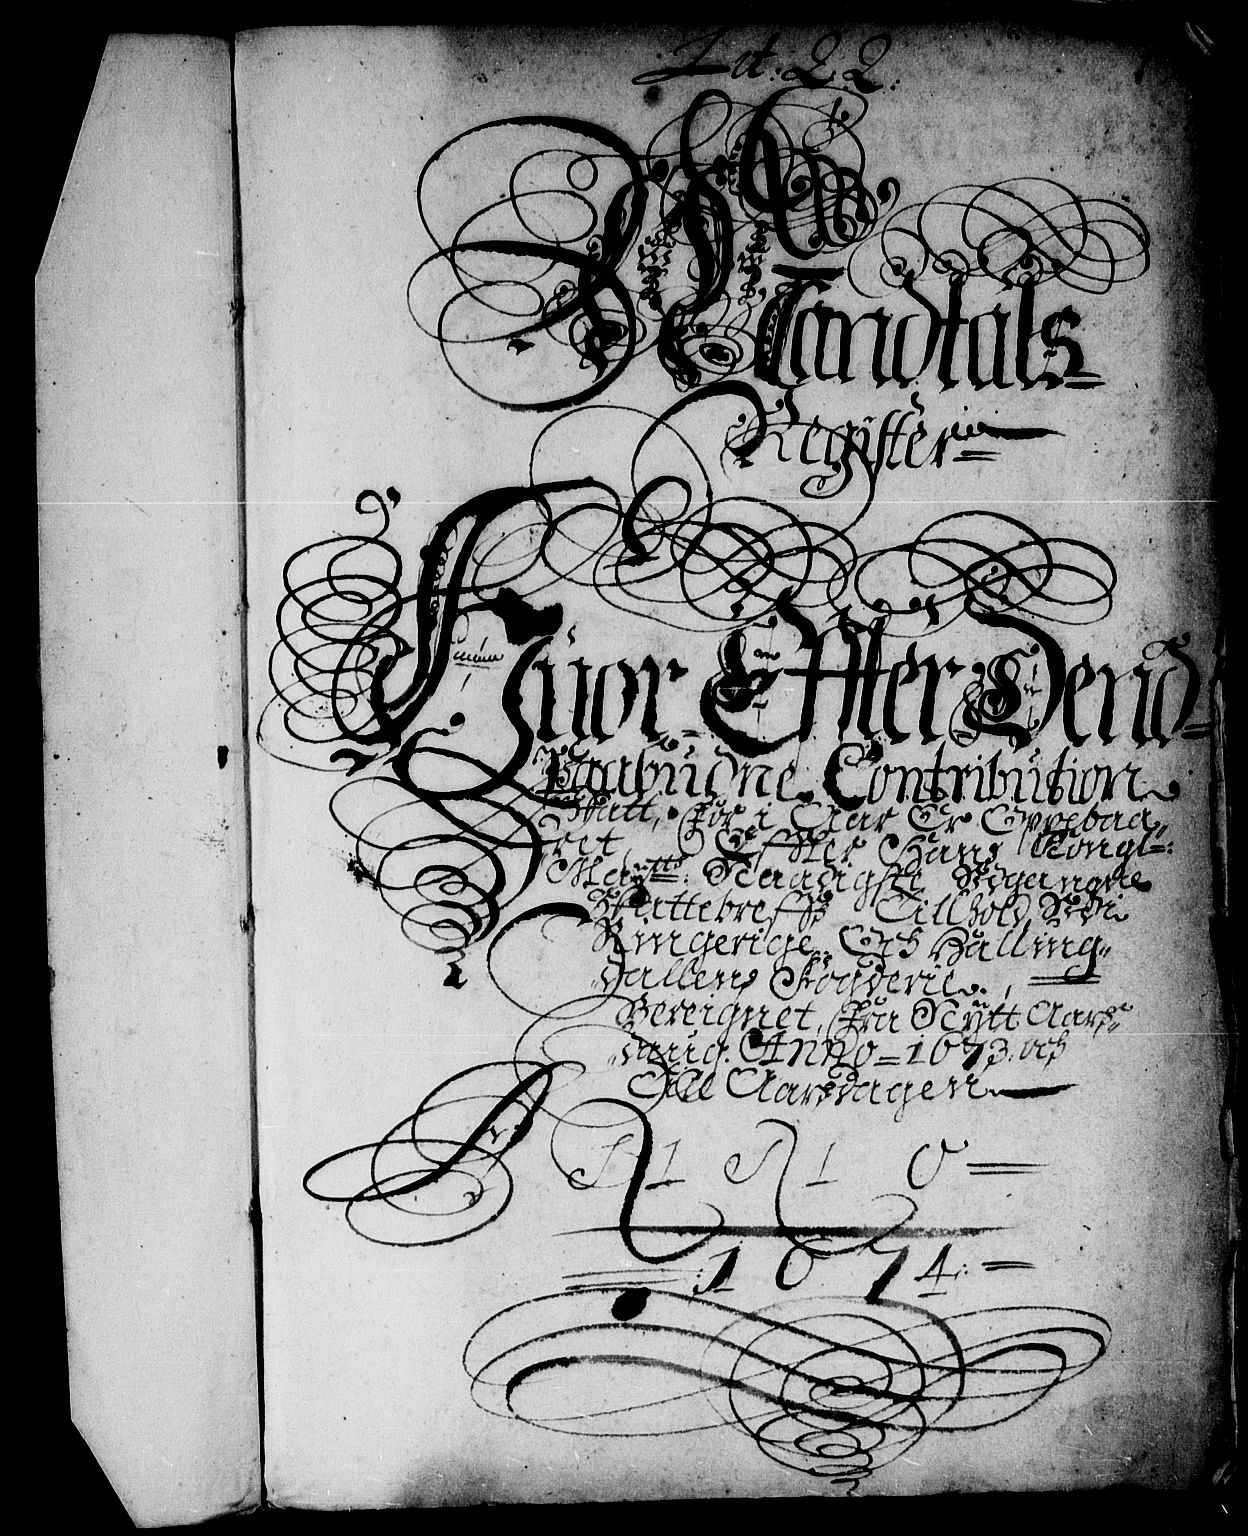 Lit: QQ:
Mandtals
Register
Huor Effter Dend
Paabudne Contribution
Skatt, for i Aar Er Oppebaa„
ret, Effter Hans Kongl:
May:tts: Naadigste Udgangne
Skattebreffs Tillhold, Udi
Ringerige Och Halling„
dallens Fogderie,
Bereignet, fra Nytt Aars„
daug. Anno 1673. och
Till Aarsdagen
A N N O
:1674: